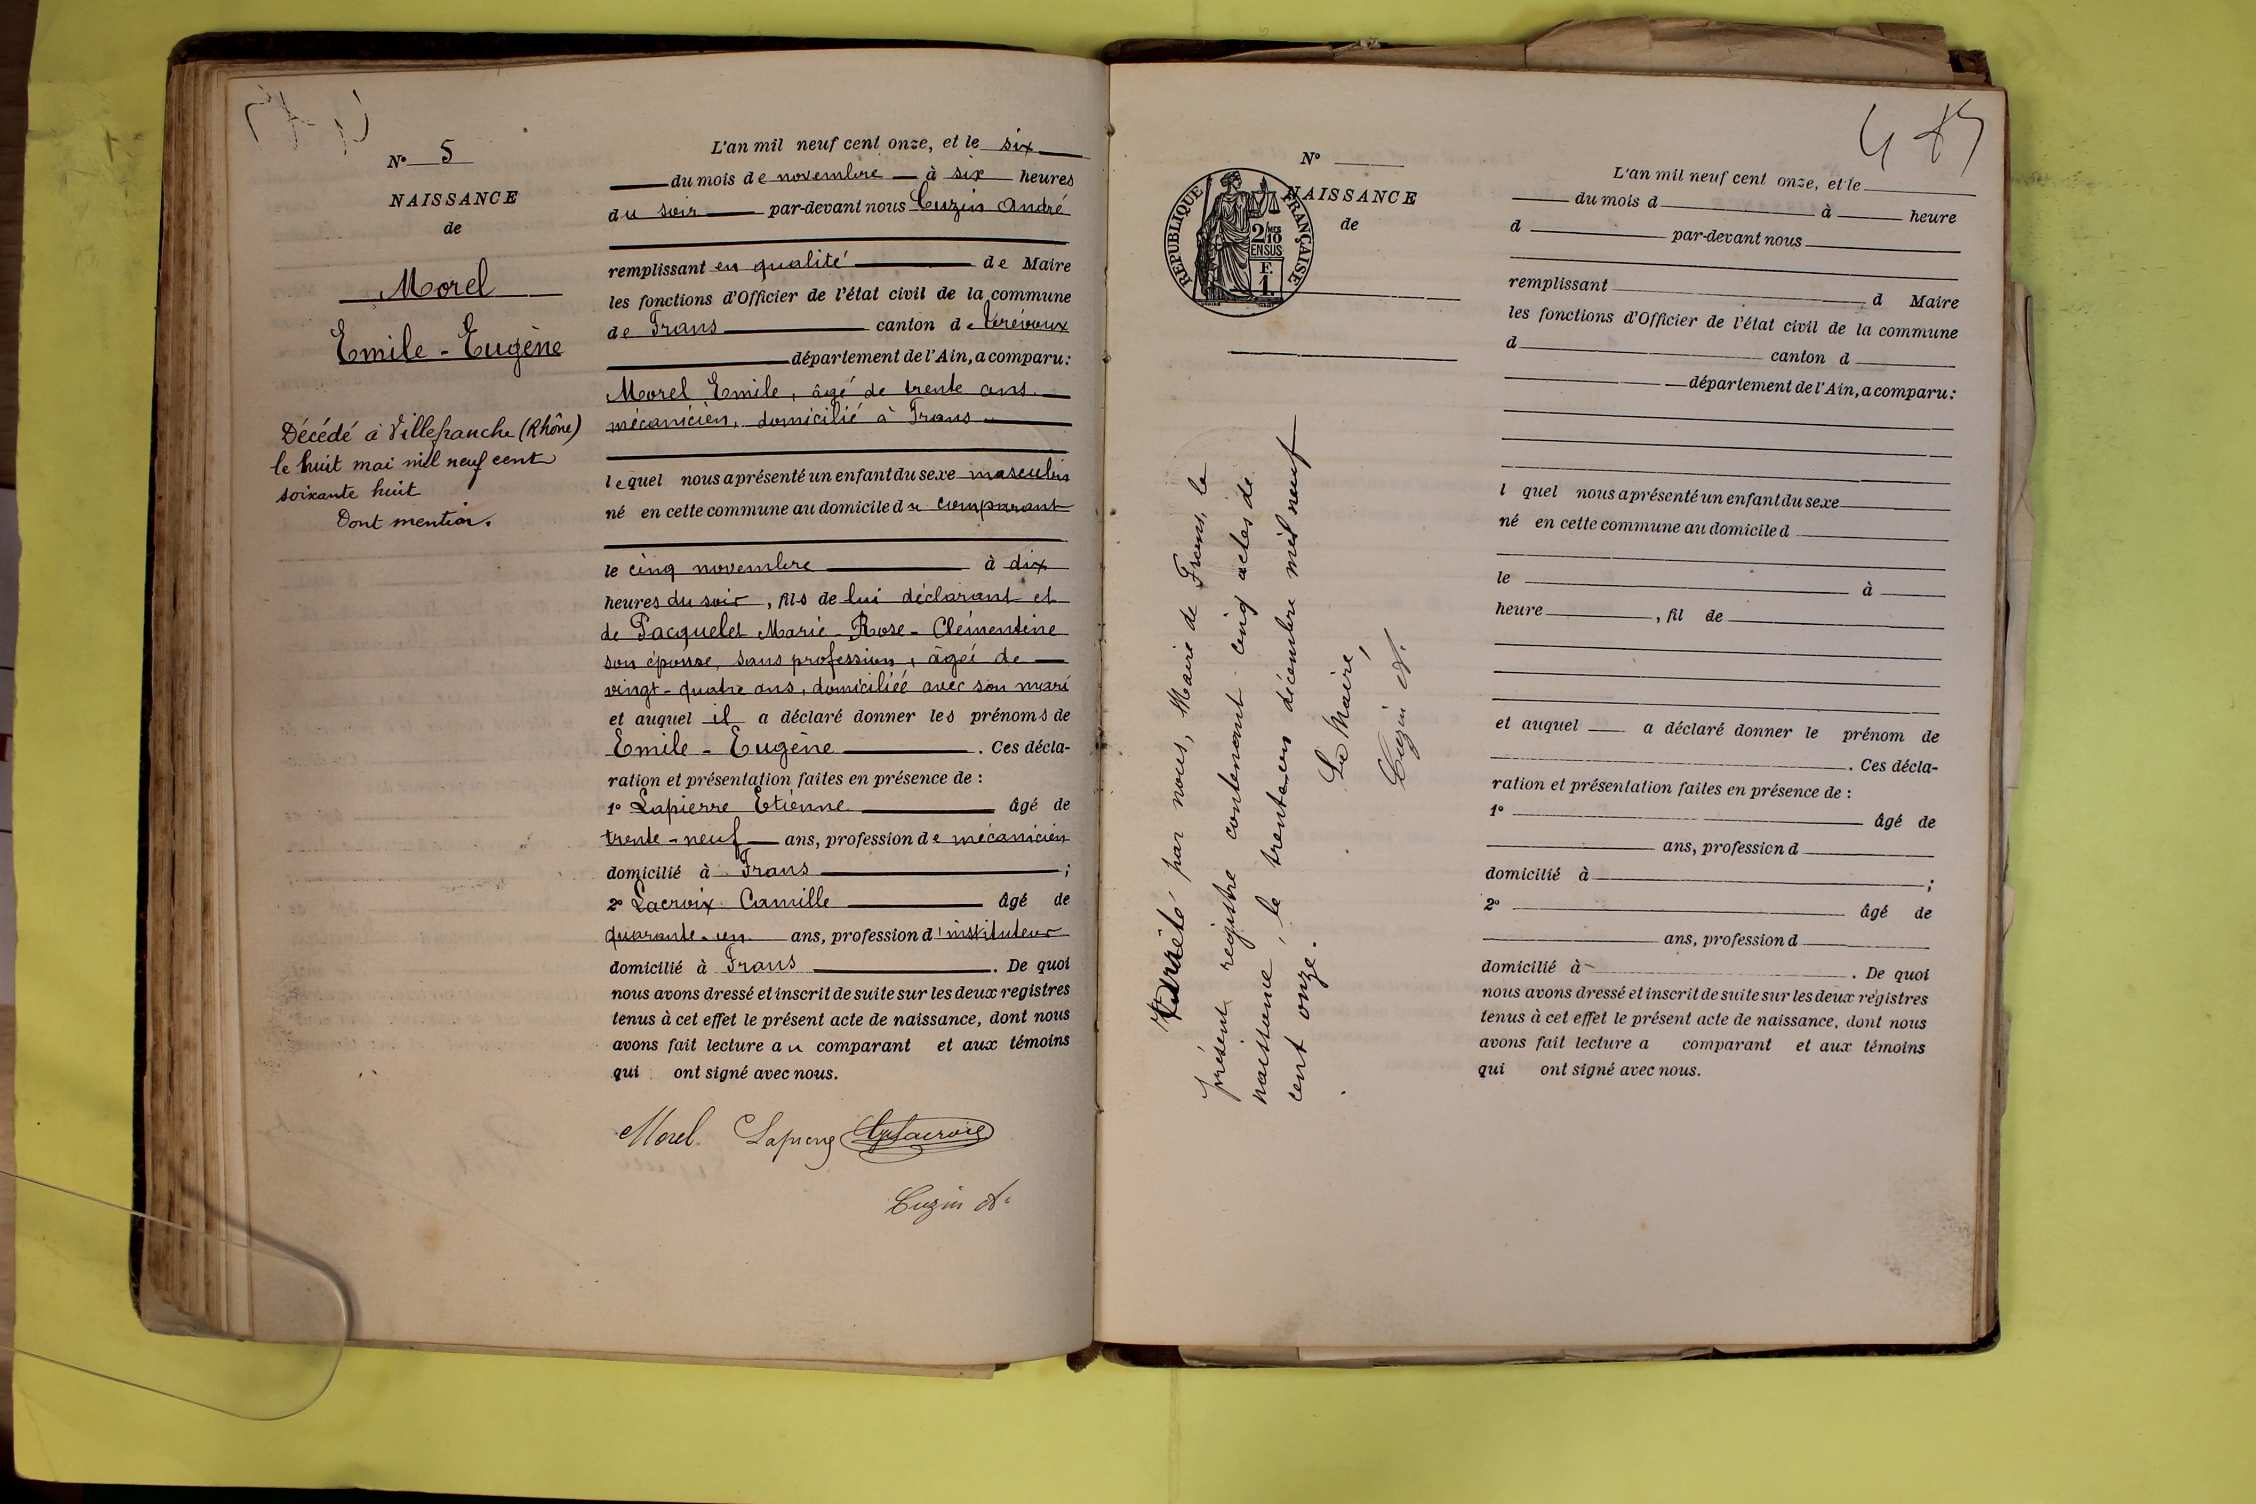 N° 5
NAISSANCE
de
Morel
Emile - Eugène
Décédé à Villefranche (Rhône)
le huit mai mil neuf cent
soixante huit
Dont mention.
L'an mil neuf cent onze, et le six
du mois de novembre à six heures
du soir par-devant nous Cuzin André
remplissant en qualité de Maire
les fonctions d'Officier de l'état civil de la commune
de Frans canton de Trévoux
département de l'Ain, a comparu:
Morel Emile, âgé de trente ans
mécanicien, domicilié à Frans
lequel nous a présenté un enfant du sexe masculin
né en cette commune au domicile du comparant
le cinq novembre à dix
heures du soir, fils de lui déclarant et
de Pacquelet Marie-Rose-Clémentine
son épouse, sans profession, âgée de
vingt-quatre ans, domiciliée avec son mari
et auquel il a déclaré donner les prénoms de
Emile - Eugène. Ces décla-
ration et présentation faites en présence de :
1° Lapierre Etienne âgé de
trente-neuf ans, profession de mécanicien
domicilié à Frans ;
2° Lacroix Camille âgé de
quarante-un ans, profession d'instituteur
domicilié à Frans. De quoi
nous avons dressé et inscrit de suite sur les deux registres
tenus à cet effet le présent acte de naissance, dont nous
avons fait lecture au comparant et aux témoins
qui ont signé avec nous.
Morel Lapierre Lacroix
Cuzin A.
485
N°
NAISSANCE
de
REPUBLIQUE FRANÇAISE
2 MES
10
EN SUS
F.
1.
Arrêté par nous, Maire de Frans, le
présent registre contenant cinq actes de
naissance, le trente-un décembre mil neuf
cent onze.
Le Maire,
Cuzin A.
L'an mil neuf cent onze, et le
du mois d à heure
d par-devant nous
remplissant d Maire
les fonctions d'Officier de l'état civil de la commune
d canton d
département de l'Ain, a comparu:
l quel nous a présenté un enfant du sexe
né en cette commune au domicile d
le à
heure , fil de
et auquel a déclaré donner le prénom de
. Ces décla-
ration et présentation faites en présence de :
1° âgé de
ans, profession d
domicilié à ;
2° âgé de
ans, profession d
domicilié à . De quoi
nous avons dressé et inscrit de suite sur les deux registres
tenus à cet effet le présent acte de naissance, dont nous
avons fait lecture a comparant et aux témoins
qui ont signé avec nous.